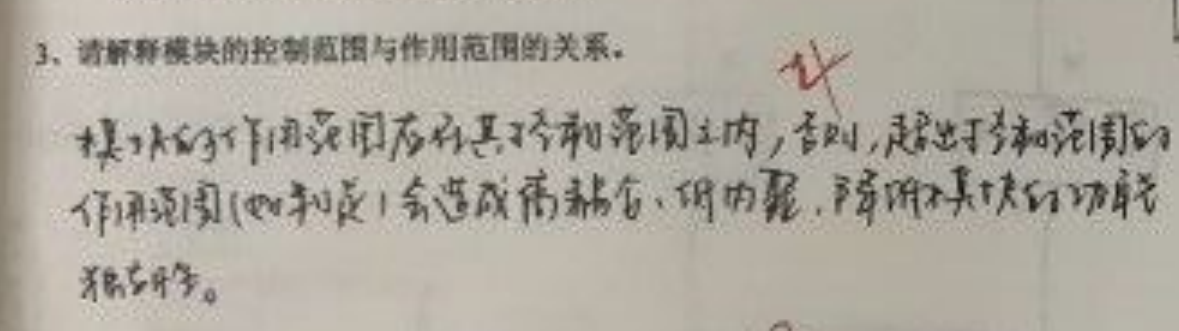 3、请解释模块的控制范围与作用范围的关系。
模块的作用范围应在其控制范围之内,否则,超出控制范围的
作用范围(如判定)会造成高耦合、低内聚,降低模块的功能
独立性。